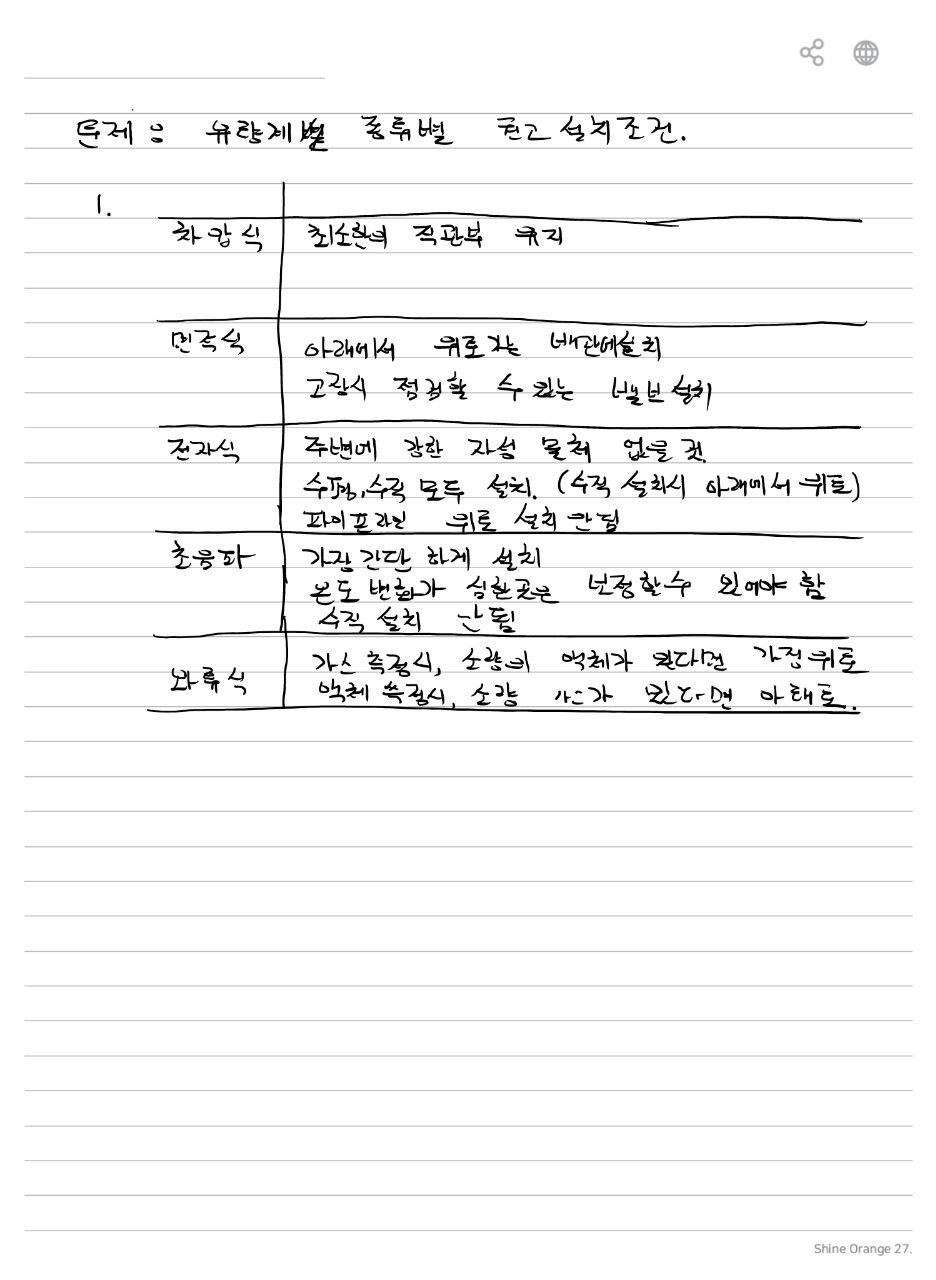 문제 : 유량계별 종류별 권고 설치조건.
1.
차압식 최소한의 직관부 유지
면적식 아래에서 위로가는 배관에설치
고장시 점검할 수 있는 밸브 설치
전자식 주변에 강한 자성 물체 없을 것.
수평,수직 모두 설치. (수직 설치시 아래에서 위로)
파이프라인 위로 설치 안됨
초음파 가장 간단 하게 설치
온도 변화가 심한곳은 보정할수 있어야 함
수직 설치 안됨
와류식 가스 측정시, 소량의 액체가 있다면 가정위로
액체 측정시, 소량 가스가 있다면 아래로.
Shine Orange 27.